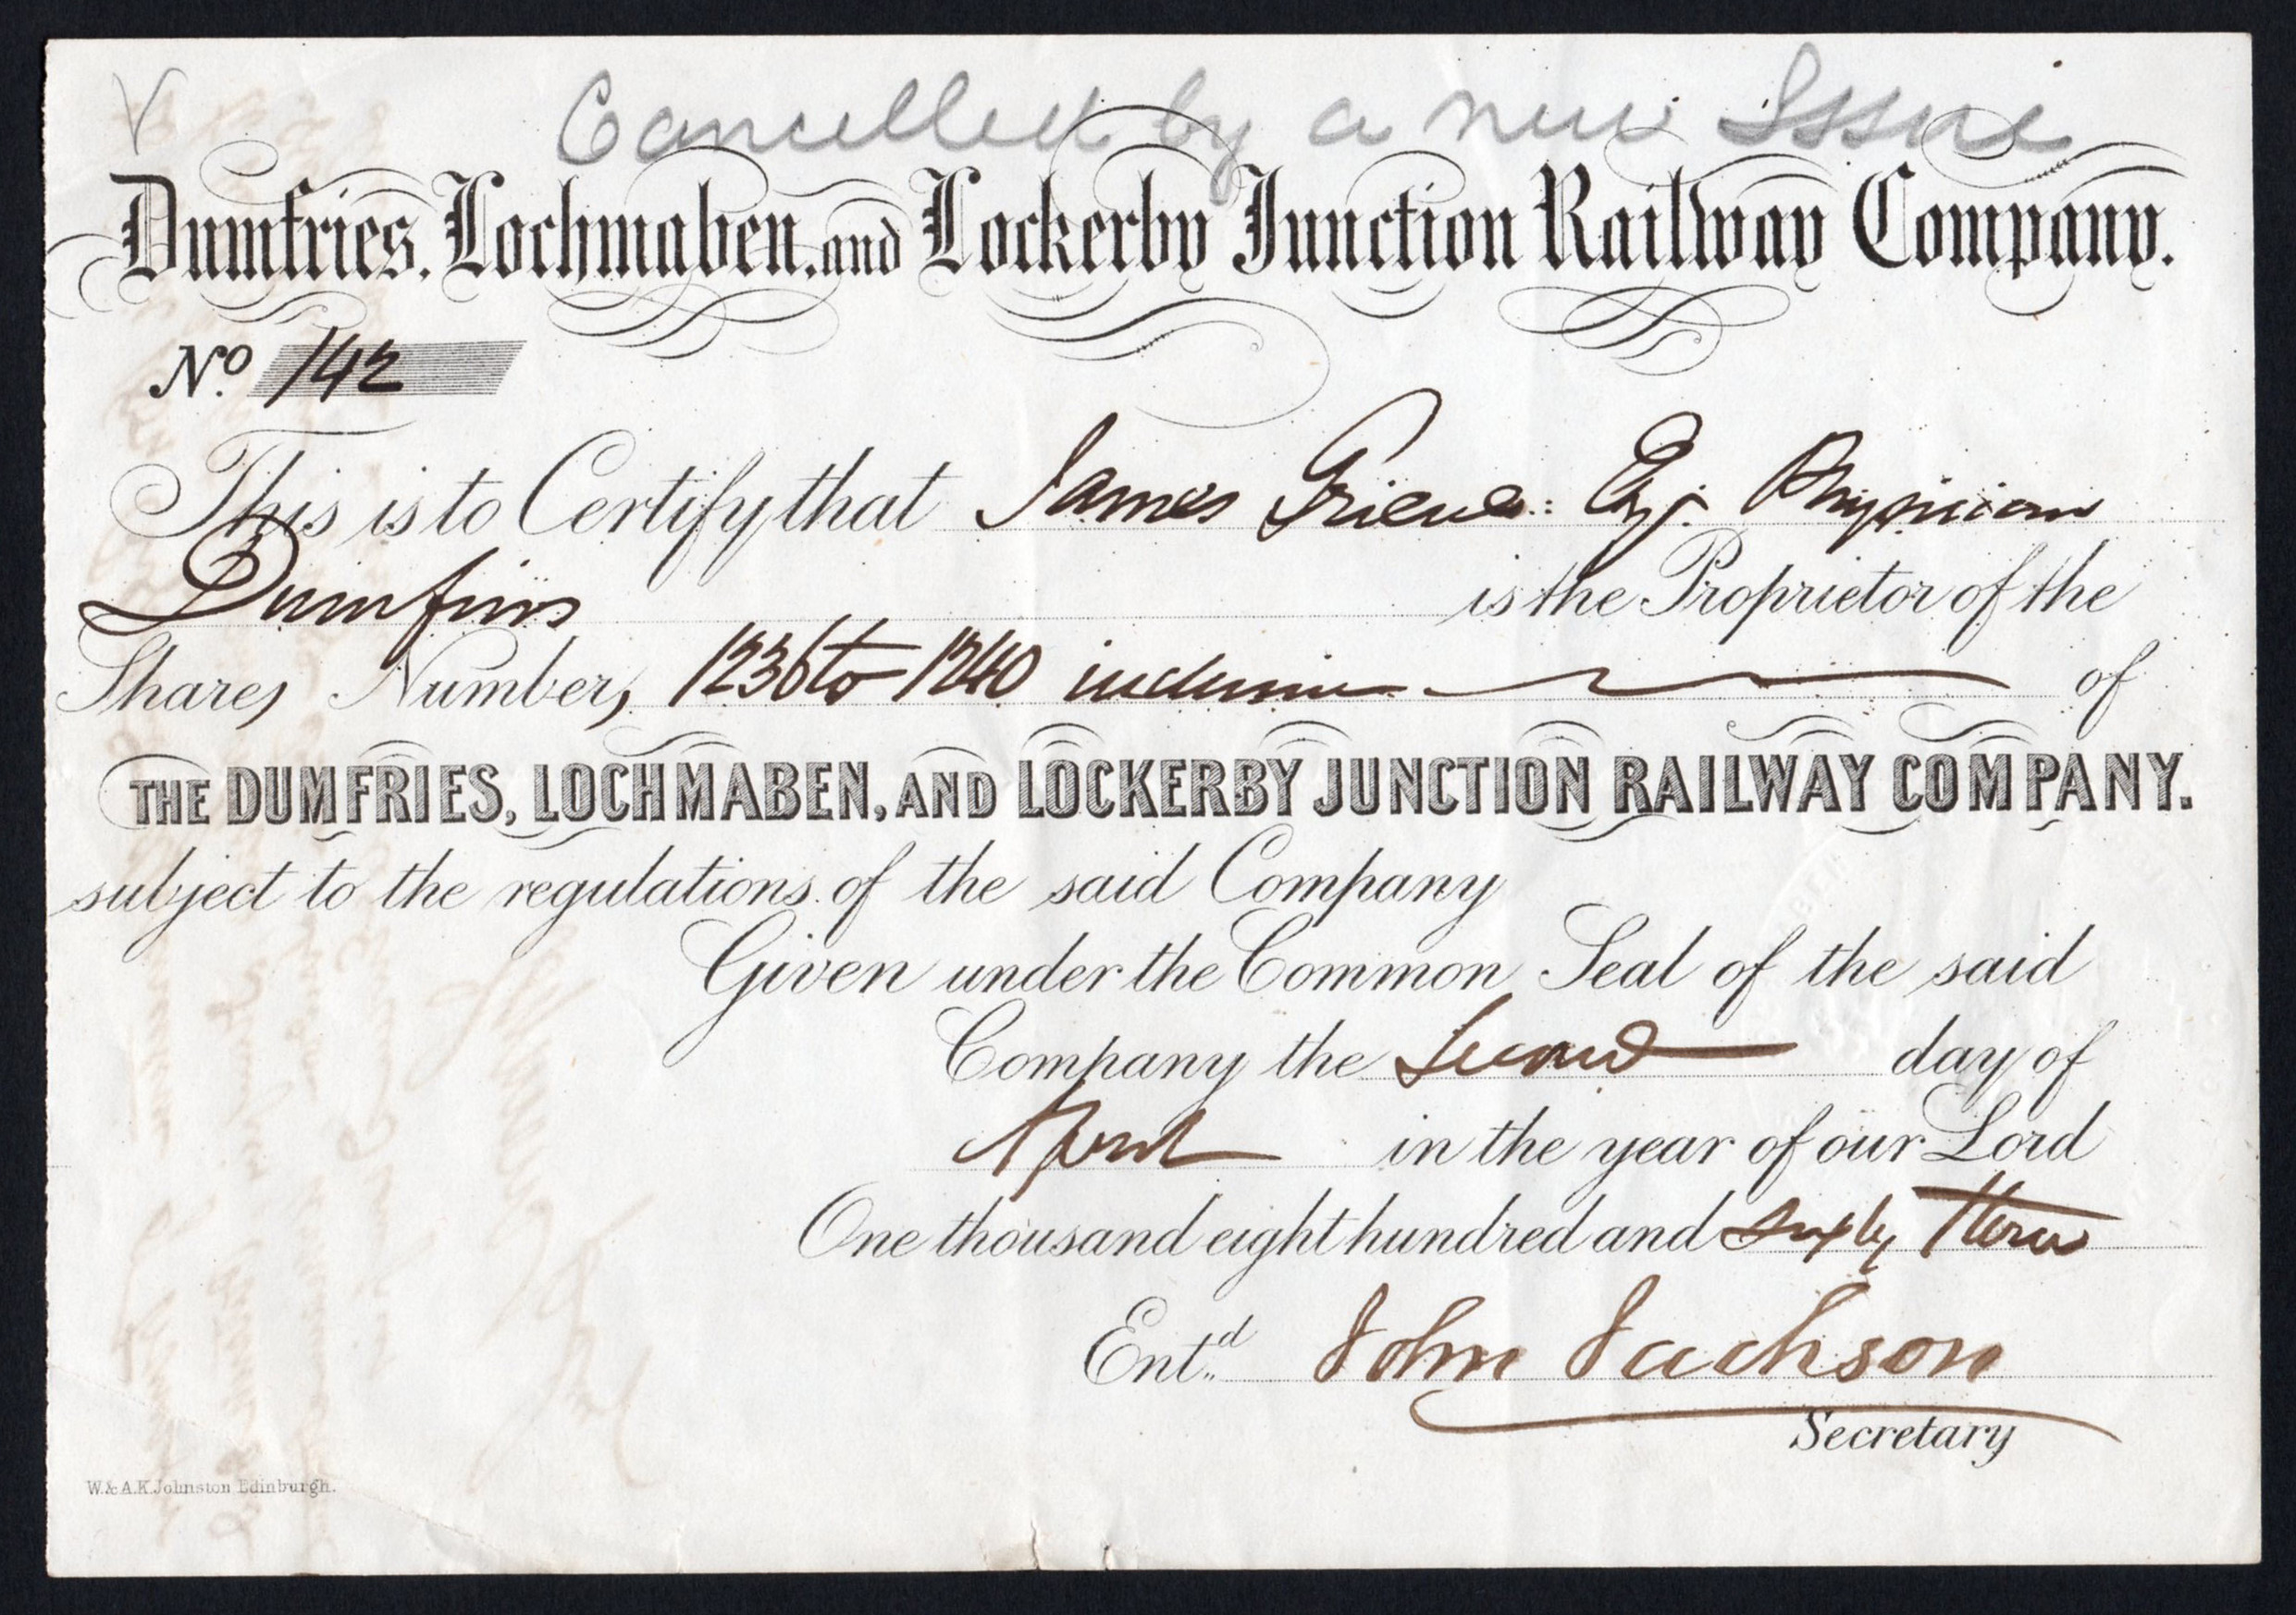 Cancelled by a new Issue
Dumfries, Lochmaben, and Lockerby Junction Railway Company.
No. 142
This is to Certify that James Grieve Esqr. Physician
Dumfries is the Proprietor of the
Shares Number, 1236 to 1240 inclusive of
THE DUMFRIES, LOCHMABEN, AND LOCKERBY JUNCTION RAILWAY COMPANY.
subject to the regulations of the said Company
Given under the Common Seal of the said
Company the Second day of
April in the year of our Lord
One thousand eight hundred and sixty three
Entd. John Jackson
Secretary
W. & A.K. Johnston Edinburgh.